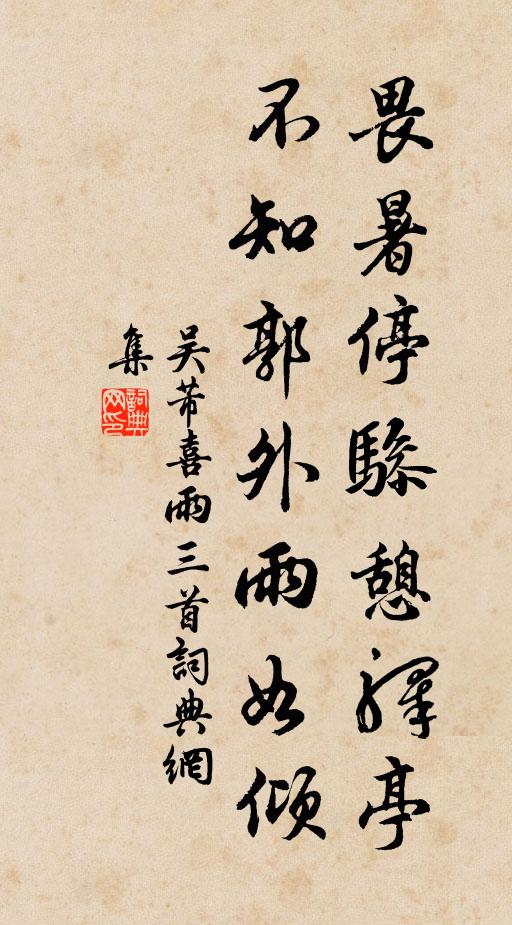 畏暑停驂憩驛亭
不知郭外雨如傾
吴芾喜雨三首詞典網
集
詞典
网印